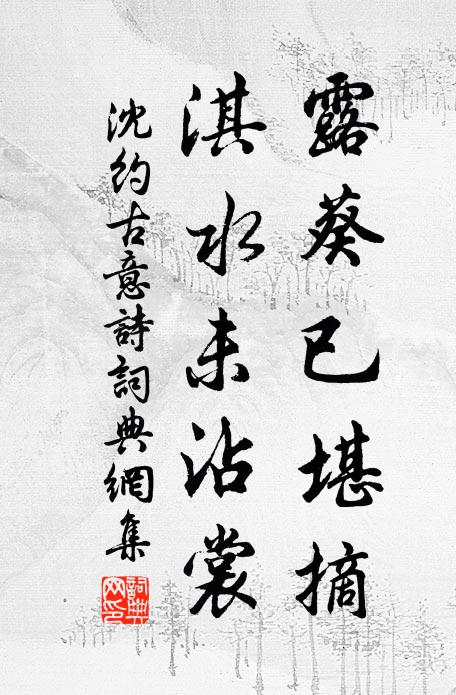 露葵已堪摘
淇水未沾裳
沈約古意詩詞典網集
詞典